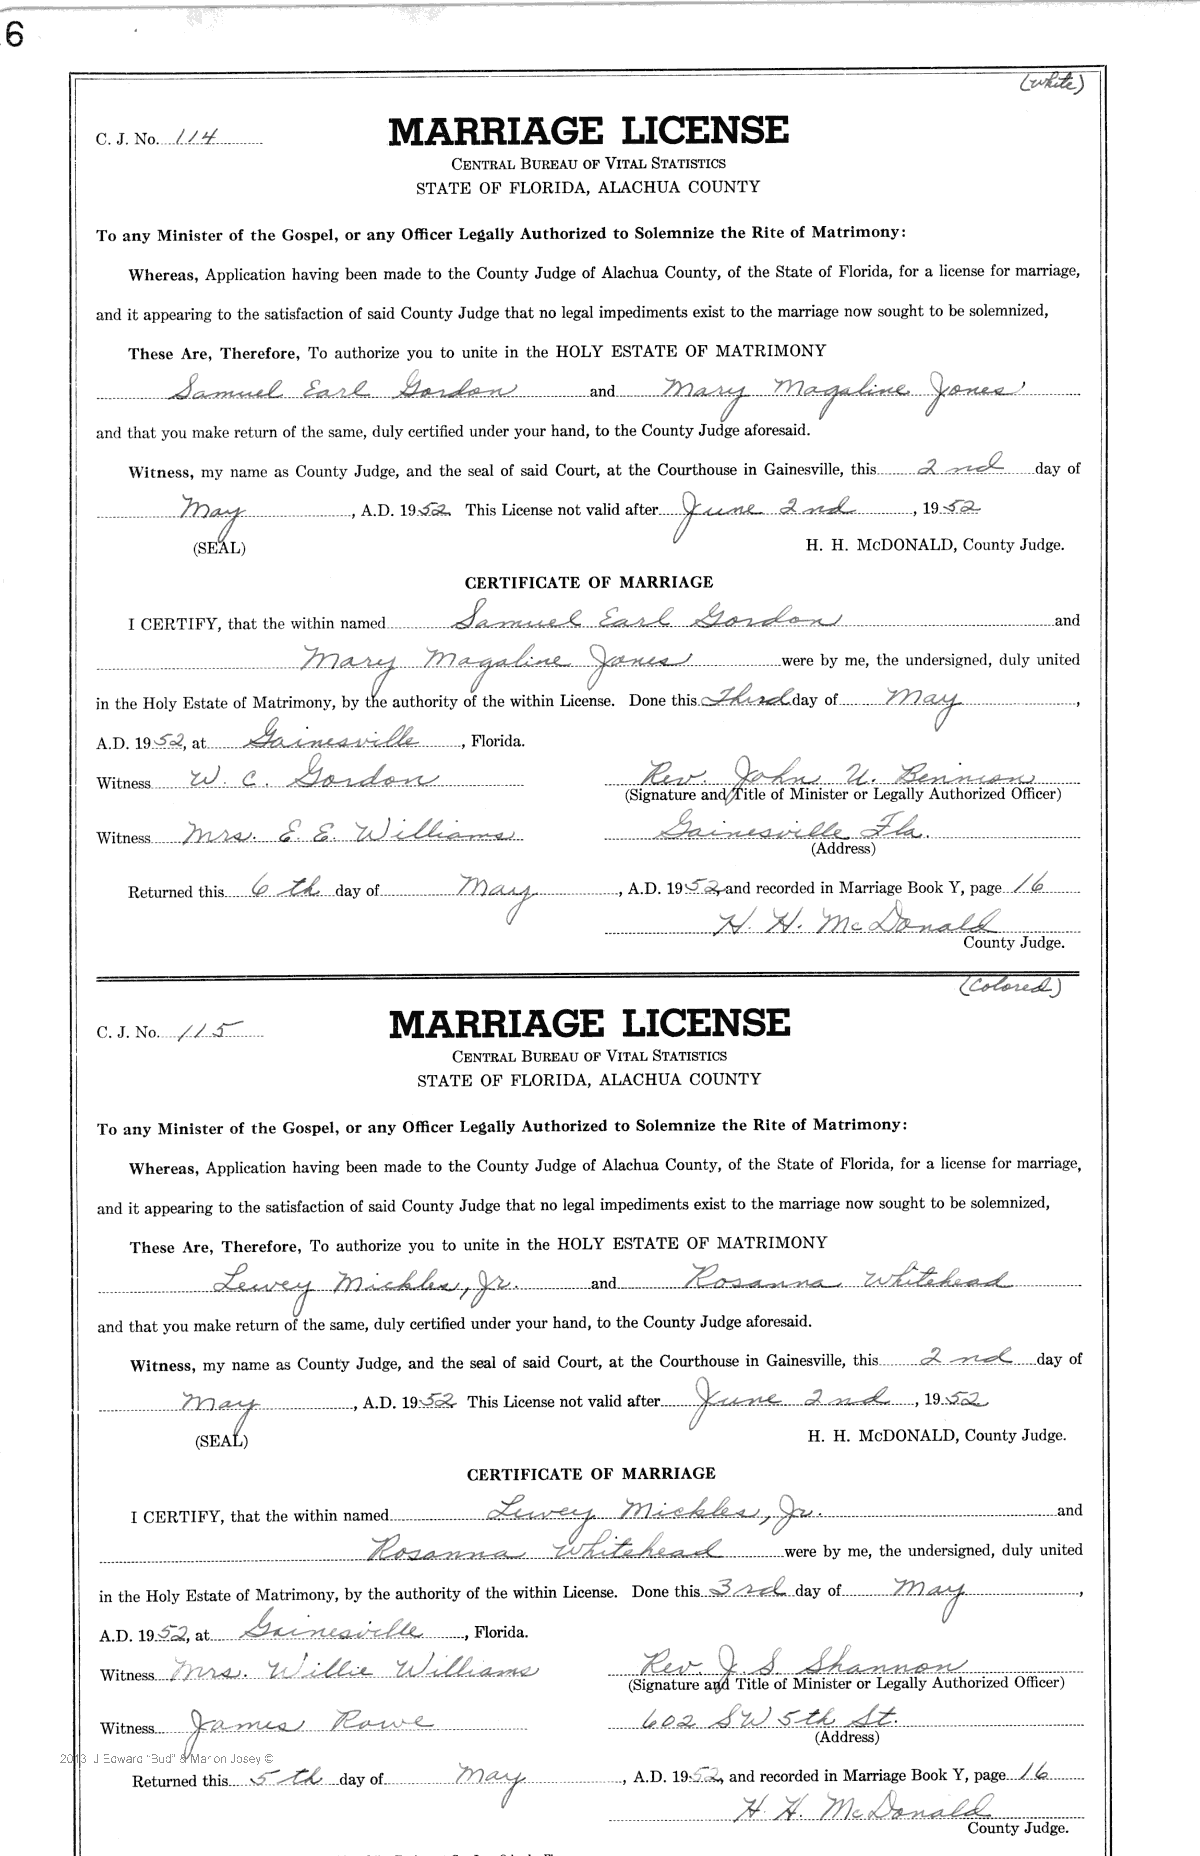 6
(White)
C. J. No. 114
MARRIAGE LICENSE
CENTRAL BUREAU OF VITAL STATISTICS
STATE OF FLORIDA, ALACHUA COUNTY
To any Minister of the Gospel, or any Officer Legally Authorized to Solemnize the Rite of Matrimony:
Whereas, Application having been made to the County Judge of Alachua County, of the State of Florida, for a license for marriage,
and it appearing to the satisfaction of said County Judge that no legal impediments exist to the marriage now sought to be solemnized,
These Are, Therefore, To authorize you to unite in the HOLY ESTATE OF MATRIMONY
Samuel Earl Gordon and Mary Magaline Jones
and that you make return of the same, duly certified under your hand, to the County Judge aforesaid.
Witness, my name as County Judge, and the seal of said Court, at the Courthouse in Gainesville, this 2nd day of
May, A.D. 1952 This License not valid after June 2nd, 1952
(SEAL) H. H. McDONALD, County Judge.
CERTIFICATE OF MARRIAGE
I CERTIFY, that the within named Samuel Earl Gordon and
Mary Magaline Jones were by me, the undersigned, duly united
in the Holy Estate of Matrimony, by the authority of the within License. Done this Third day of May,
A.D. 1952, at Gainesville, Florida.
Witness W. C. Gordon Rev. John U. Bennion
(Signature and Title of Minister or Legally Authorized Officer)
Witness Mrs. E. E. Williams Gainesville Fla.
(Address)
Returned this 6th day of May, A.D. 1952, and recorded in Marriage Book Y, page 16
H. H. McDonald
County Judge.
(Colored)
C. J. No. 115
MARRIAGE LICENSE
CENTRAL BUREAU OF VITAL STATISTICS
STATE OF FLORIDA, ALACHUA COUNTY
To any Minister of the Gospel, or any Officer Legally Authorized to Solemnize the Rite of Matrimony:
Whereas, Application having been made to the County Judge of Alachua County, of the State of Florida, for a license for marriage,
and it appearing to the satisfaction of said County Judge that no legal impediments exist to the marriage now sought to be solemnized,
These Are, Therefore, To authorize you to unite in the HOLY ESTATE OF MATRIMONY
Lewey Mickles, Jr. and Rosanna Whitehead
and that you make return of the same, duly certified under your hand, to the County Judge aforesaid.
Witness, my name as County Judge, and the seal of said Court, at the Courthouse in Gainesville, this 2nd day of
May, A.D. 1952 This License not valid after June 2nd, 1952
(SEAL) H. H. McDONALD, County Judge.
CERTIFICATE OF MARRIAGE
I CERTIFY, that the within named Lewey Mickles, Jr. and
Rosanna Whitehead were by me, the undersigned, duly united
in the Holy Estate of Matrimony, by the authority of the within License. Done this 3rd day of May,
A.D. 1952, at Gainesville, Florida.
Witness Mrs. Willie Williams Rev. J. S. Shannon
(Signature and Title of Minister or Legally Authorized Officer)
Witness James Rowe 602 SW 5th St.
(Address)
2013 J Edward "Bud" & Marion Josey ©
Returned this 5th day of May, A.D. 1952, and recorded in Marriage Book Y, page 16
H. H. McDonald
County Judge.